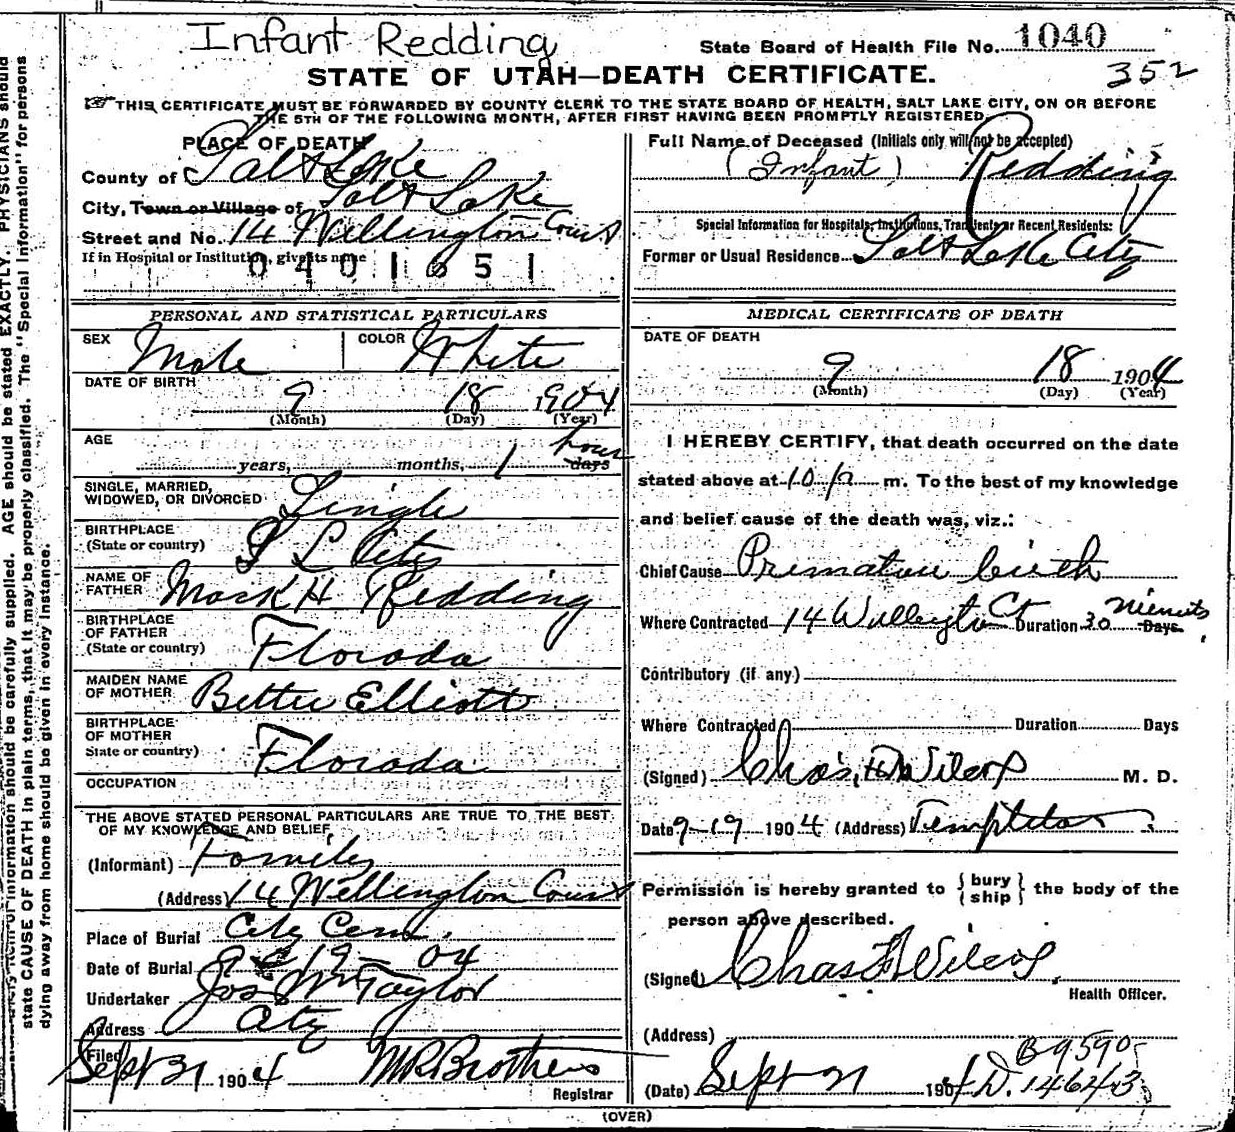 Infant Redding
State Board of Health File No. 1040
352
STATE OF UTAH—DEATH CERTIFICATE.
THIS CERTIFICATE MUST BE FORWARDED BY COUNTY CLERK TO THE STATE BOARD OF HEALTH, SALT LAKE CITY, ON OR BEFORE
THE 5TH OF THE FOLLOWING MONTH, AFTER FIRST HAVING BEEN PROMPTLY REGISTERED
PLACE OF DEATH
County of Salt Lake
City, Town or Village of Salt Lake
Street and No. 14 Wellington Court
If in Hospital or Institution, give its name
0401651
Full Name of Deceased (Initials only will not be accepted)
(Infant) Redding
Special Information for Hospitals, Institutions, Transients or Recent Residents:
Former or Usual Residence Salt Lake City
PERSONAL AND STATISTICAL PARTICULARS
SEX Male COLOR White
DATE OF BIRTH
9 18 1904
(Month) (Day) (Year)
AGE
years, months, 1 hour days
SINGLE, MARRIED,
WIDOWED, OR DIVORCED Single
BIRTHPLACE
(State or country) S L City
NAME OF
FATHER Mark H Redding
BIRTHPLACE
OF FATHER
(State or country) Florada
MAIDEN NAME
OF MOTHER Bettie Elliott
BIRTHPLACE
OF MOTHER
State or country) Florada
OCCUPATION
THE ABOVE STATED PERSONAL PARTICULARS ARE TRUE TO THE BEST
OF MY KNOWLEDGE AND BELIEF
(Informant) Family
(Address 14 Wellington Court
Place of Burial City Cem.
Date of Burial 9 19 04
Undertaker Jos Wm Taylor
Address City
Filed
Sept 21 1904
Registrar
MEDICAL CERTIFICATE OF DEATH
DATE OF DEATH
9 18 1904
(Month) (Day) (Year)
I HEREBY CERTIFY, that death occurred on the date
stated above at 10 P m. To the best of my knowledge
and belief cause of the death was, viz.:
Chief Cause Premature birth
Where Contracted 14 Wellington Ct Duration 30 Minuts Days
Contributory (if any)
Where Contracted Duration Days
(Signed) Chas. M. D.
Date 9-19 1904 (Address) Templeton
Permission is hereby granted to {bury ship} the body of the
person above described.
(Signed) Chas
Health Officer.
(Address)
B-9590-
(Date) Sept 21 1904 D. 14643
(OVER)
state CAUSE OF DEATH in plain terms, that it may be properly classified. The "Special Information" for persons
dying away from home should be given in every instance.